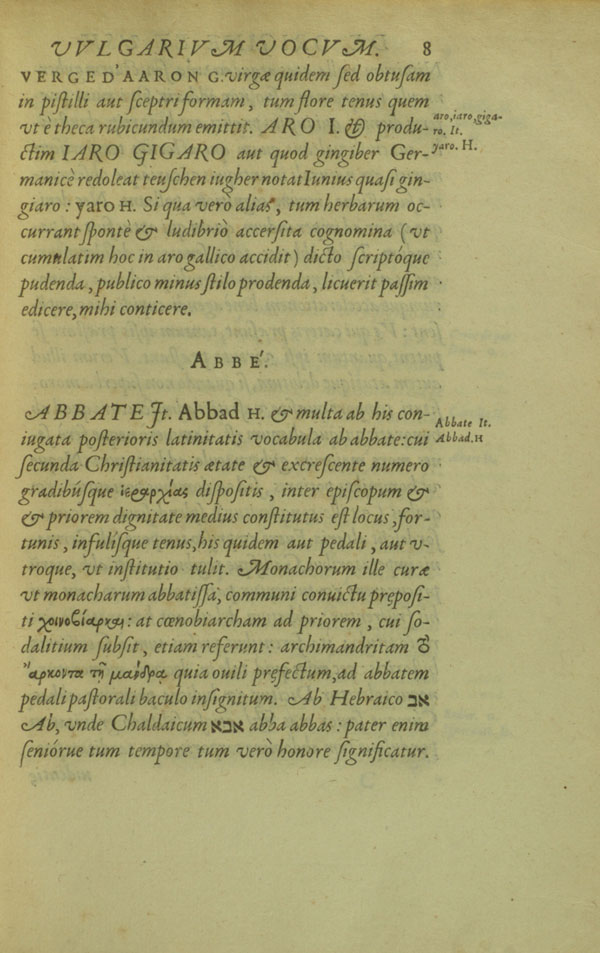 VVLGARIVM VOCVM. 8
VERGE D'AARON G. virgæ quidem sed obtusam
in pistilli aut sceptri formam, tum flore tenus quem
vt è theca rubicundum emittit. ARO I. & produ-
ctim IARO GIGARO aut quod gingiber Ger-
manicè redoleat teuschen iugher notat Iunius quasi gin-
giaro : yaro H. Si qua verò alias, tum herbarum oc-
currant spontè & ludibriò accersita cognomina (vt
cumulatim hoc in aro gallico accidit) dicto scriptóque
pudenda, publico minus stilo prodenda, licuerit passim
edicere, mihi conticere.
aro, iaro, giga-
ro. It.
yaro. H.
ABBE'.
ABBATE It. Abbad H. & multa ab his con-
iugata posterioris latinitatis vocabula ab abbate: cui
secunda Christianitatis ætate & excrescente numero
gradibúsque ἱεραρχίας dispositis, inter episcopum &
& priorem dignitate medius constitutus est locus, for-
tunis, infulisque tenus, his quidem aut pedali, aut v-
troque, vt institutio tulit. Monachorum ille curæ
vt monacharum abbatissa, communi conuictu præposi-
ti κοινοβίαρχῃ: at cœnobiarcham ad priorem, cui so-
dalitium subsit, etiam referunt: archimandritam
ἄρκοντα τῇ μάνδρᾳ quia ouili præfectum, ad abbatem
pedali pastorali baculo insignitum. Ab Hebraico אב
Ab, vnde Chaldaicum אבא abba abbas : pater enim
seniórue tum tempore tum verò honore significatur.
Abbate It.
Abbad. H